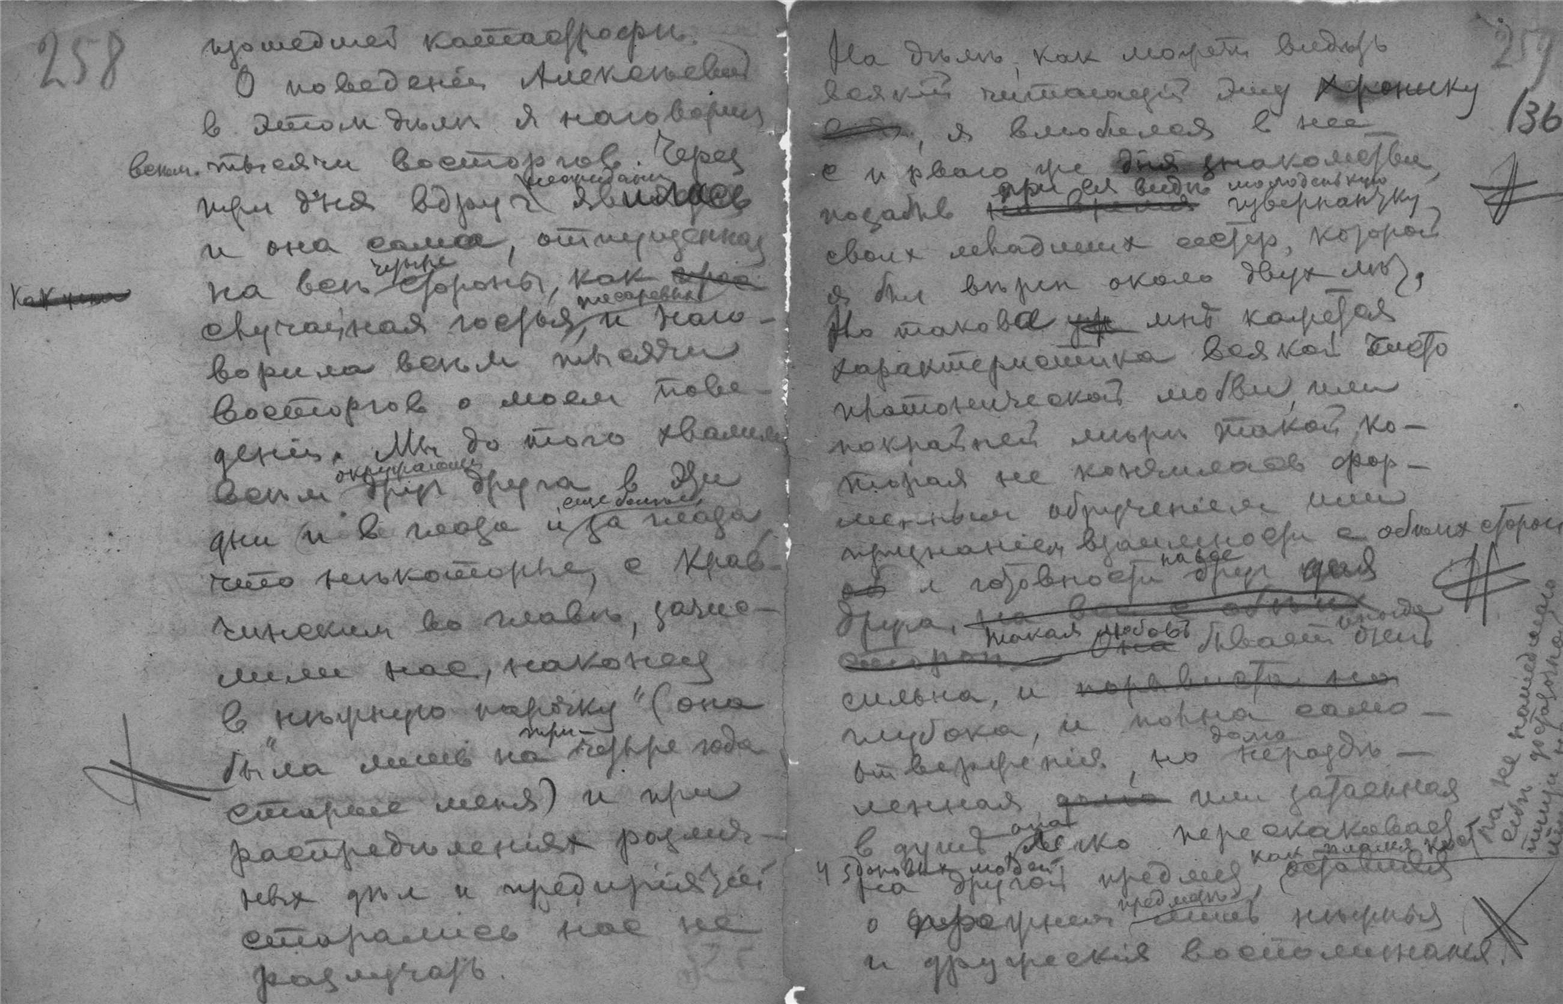 258
изошедшей катастрофы.
О поведеніи Алексѣевой
в этом дѣлѣ я наговорил
всѣм. тысячи восторгов. Через
три дня вдруг неожиданно явилась
и она сама, отпущенная
на всѣ четыре стороны, как
случайная гостья, и наго-
ворила всѣм тысячи
восторгов о моем пове-
деніи. Мы до того хвалили
всѣм окружающим друг друга в эти
дни и в глаза и еще больше за глаза
что нѣкоторые, с Крав-
чинским во главѣ, зачис-
лили нас, наконец
в „нѣжную парочку" (она
была лишь на три-четыре года
старше меня) и при
распредѣленіях различ-
ных дѣл и предпріятій
старались нас не
разлучать.
259
136
На дѣлѣ, как может видѣть
всякій читающій эту хронику
я влюбился в нее
с перваго же дня знакомства,
позабыв при ея видѣ молоденькую гувернантку
своих младших сестер, которой
я был вѣрен около двух лѣт.
Но такова мнѣ кажется
характеристика всякой чисто
платонической любви, или
по крайней мѣрѣ такой, ко-
торая не кончилась фор-
менным обрученіем или
признаніем взаимности с обоих сторон
и готовности на все друг для
друга. Такая любовь бывает иногда очень
сильна, и
глубока, и полна само-
отверженія, но нераздѣ-
ленная или затаенная
в душѣ она легко перескакивает
у здоровых людей на другой предмет, как пламя костра, оставляя
о прежнем лишь нѣжныя
и дружескія воспоминанія.